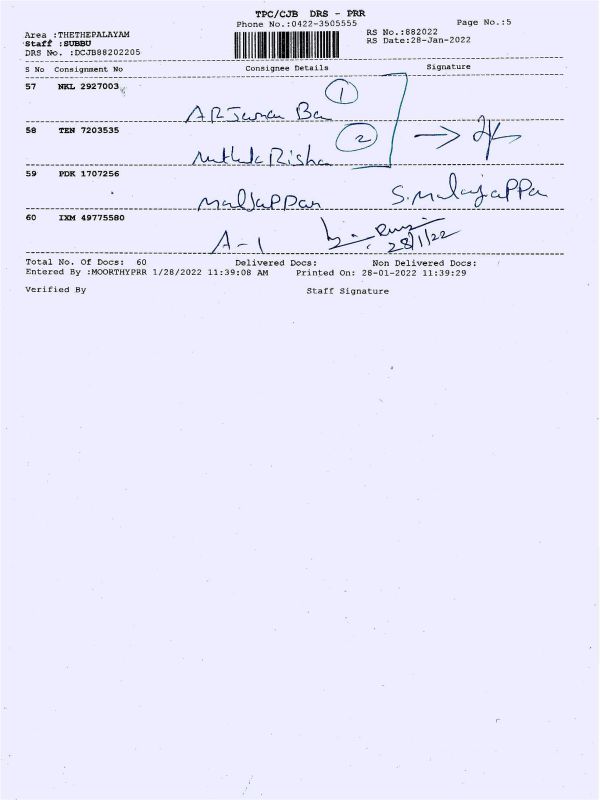 TPC/CJB DRS - PRR
Phone No.:0422-3505555
Page No.:5
Area :THETHEPALAYAM
RS No.:882022
Staff :SUBBU
RS Date:28-Jan-2022
DRS No. :DCJB88202205
S No Consignment No Consignee Details Signature
57 NKL 2927003 1
58 TEN 7203535 2
59 PDK 1707256 S.Malayappa
60 IXM 49775580 A-1 28/1/22
Total No. Of Docs: 60 Delivered Docs: Non Delivered Docs:
Entered By :MOORTHYPRR 1/28/2022 11:39:08 AM Printed On: 28-01-2022 11:39:29
Verified By Staff Signature